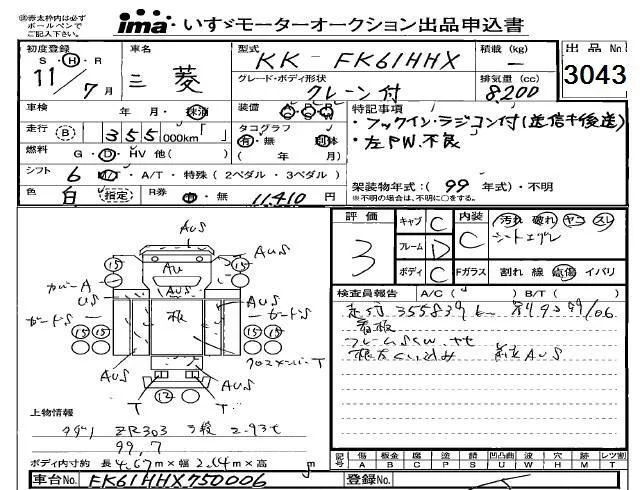 ㊟赤太枠内は必ず
ボールペンで
ご記入下さい。
ima いすゞモーターオークション出品申込書
初度登録 S・H・R 11/7月
車名 三菱
型式 KK-FK61HHX
積載(kg) ー
出品No 3043
グレード・ボディ形状 クレーン付
排気量(cc) 8,200
車検 年 月・抹消
装備 A P P
走行 B 355 000km「 」
タコグラフ 有・無 別体
( 年 月)
燃料 G・D・HV 他( )
シフト 6 M/T・A/T・特殊(2ペダル・3ペダル)
色 白 指定
R券 有・無 11,410円
特記事項
・フックイン・ラジコン付(送信キ後送)
・左PW.不良
架装物年式:(99年式)・不明
※不明の場合は、不明に○をする。
評価 3
キャブ C
フレーム D
ボディ C
内装 C
汚れ 破れ ヤコ スレ
シートエグレ
Fガラス 割れ 線 点傷 イバリ
検査員報告 A/C( ) B/T( )
走行 355839k
看板
フレームSCW.
AUS
AUS
AU
AUS
AUS
15
15
カバーA
US
ガードS
板
ガードS
15 15
15 15
AUS
AUS
クロスメンバーT
T
T
12
上物情報
タダノ ZR303 3段 2.93t
99.7
ボディ内寸約 長4.67m×幅2.14m×高 m
記号 傷A 板金B 腐C 塗P 錆S 凹凸曲U 波W 穴H 跡M レツ割T
車台No. FK61HHX750006
登録No.